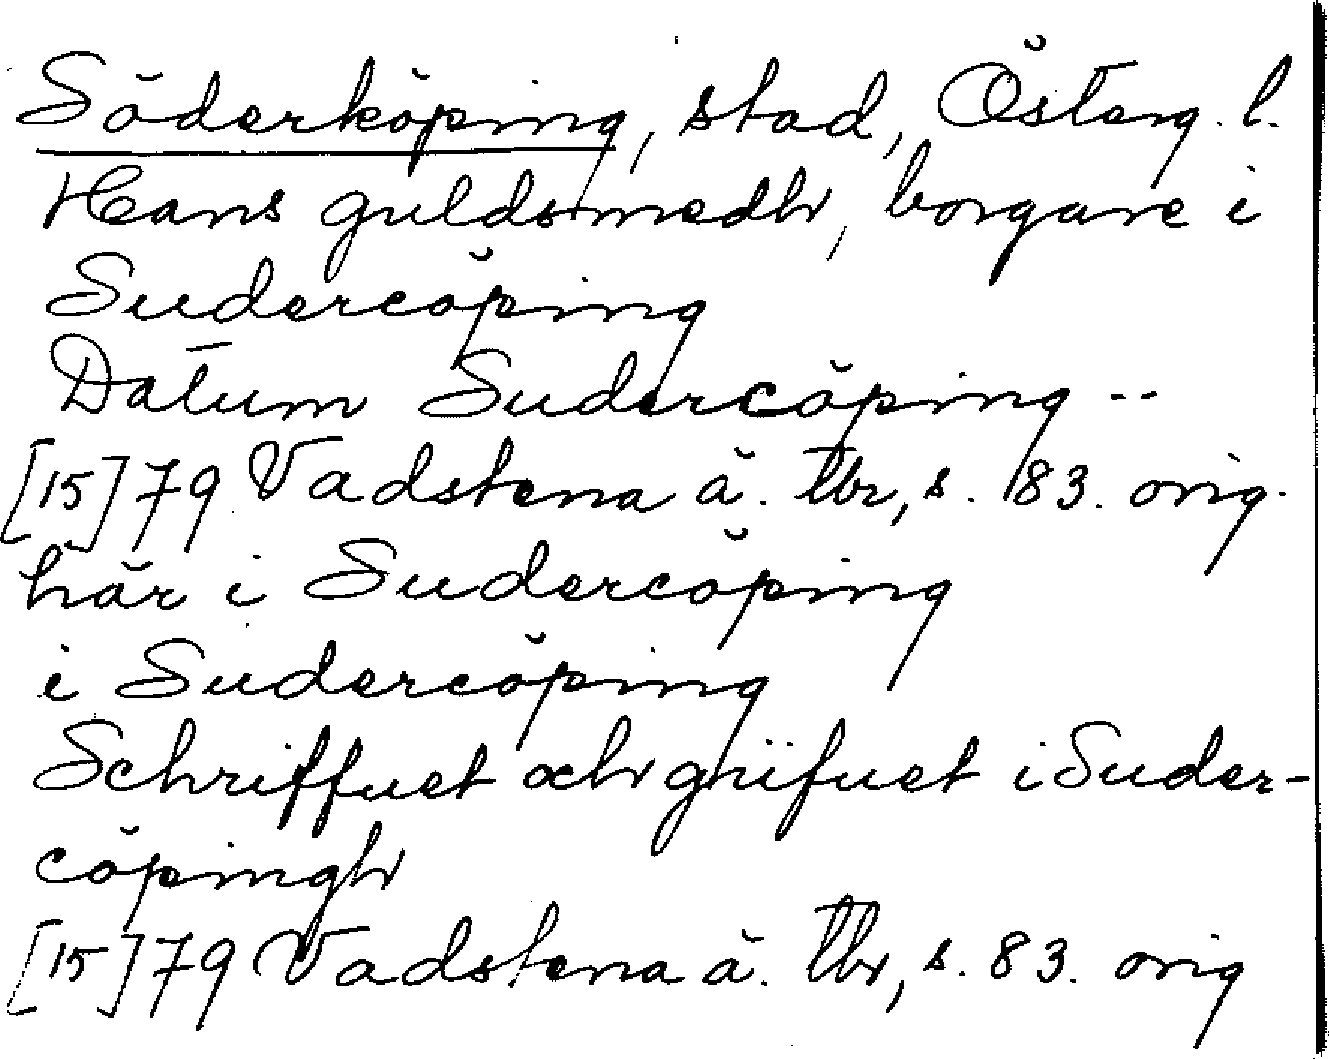 Söderköping, stad, Österg. l.
Hans guldsmedh, borgare i
Sudercöping
Datum Sudercöping --
[15]79 Vadstena ä. tbr, s. 183. orig.
här i Sudercöping
i Sudercöping
Schriffuet och giifuet i Suder-
cöpingh
[15]79 Vadstena ä. tbr, s. 83. orig